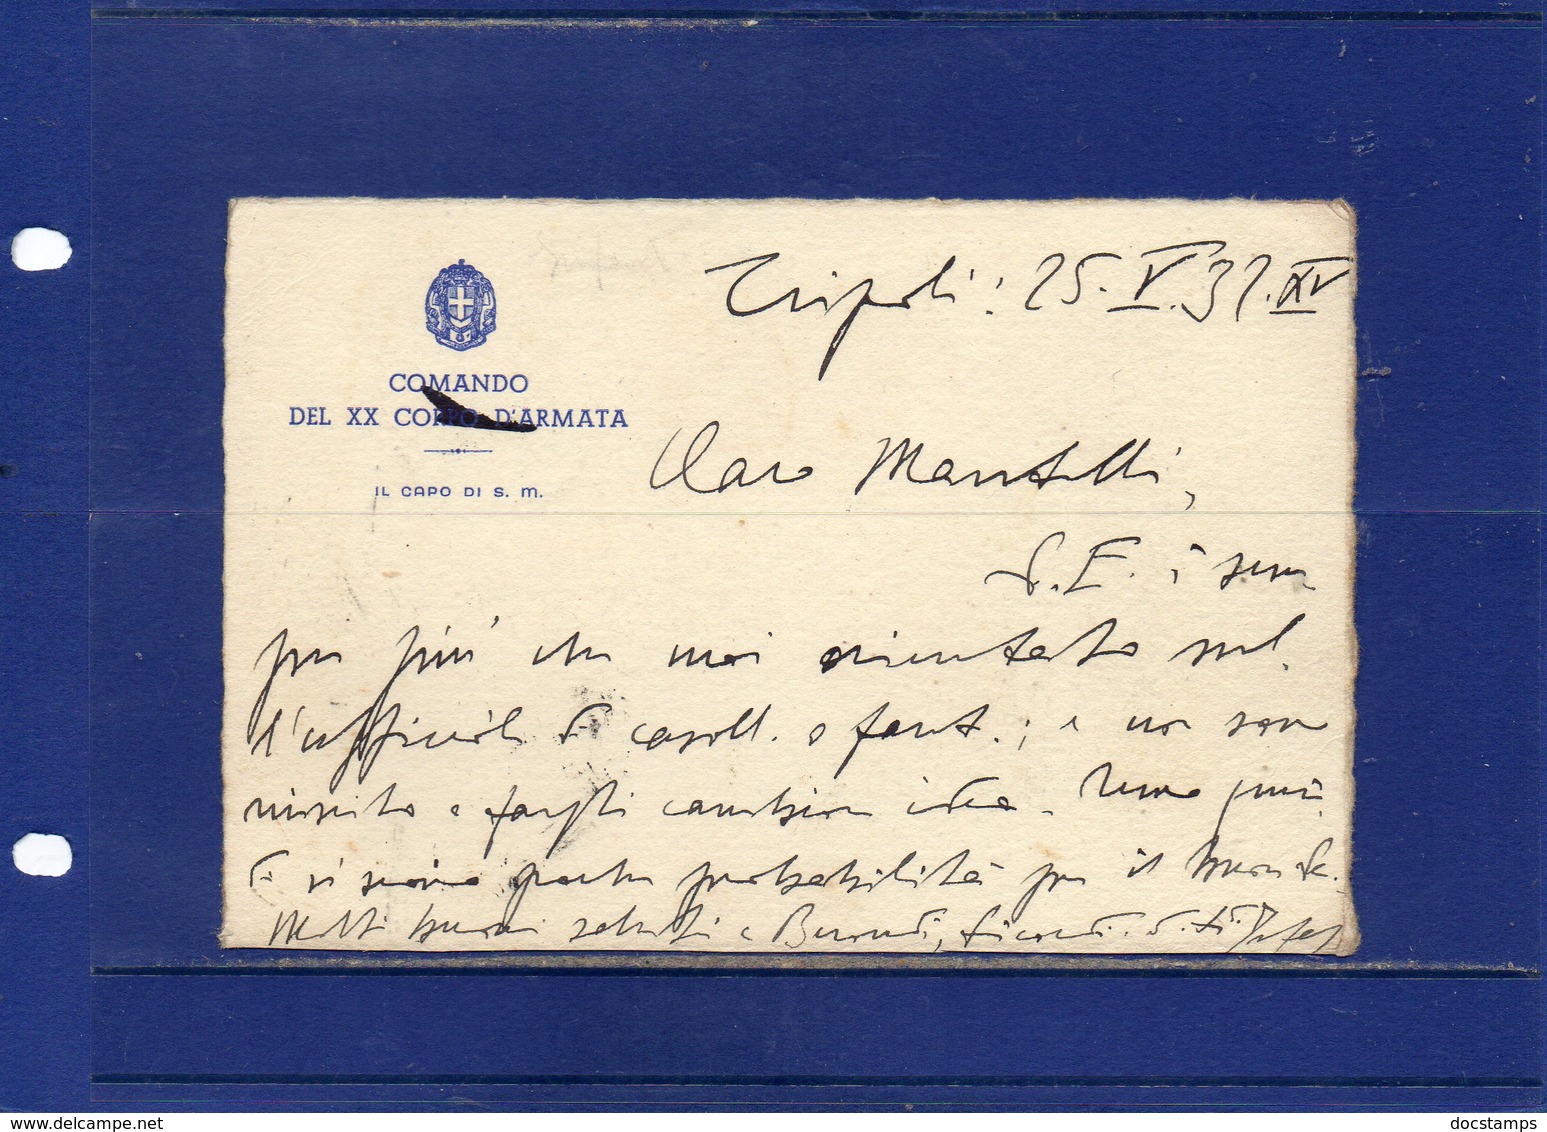 COMANDO
DEL XX CORPO D'ARMATA
IL CAPO DI S. M.
Tripoli: 25.V.37.XV
Caro Mantelli,
S.E. è sem
pre più che mai orientato sul
l'ufficiale di cavall. o fant.; e non sono
riuscito a fargli cambiare idea.
di vi sono poche probabilità per il
Molti buoni saluti a
docstamps
delcampe.net